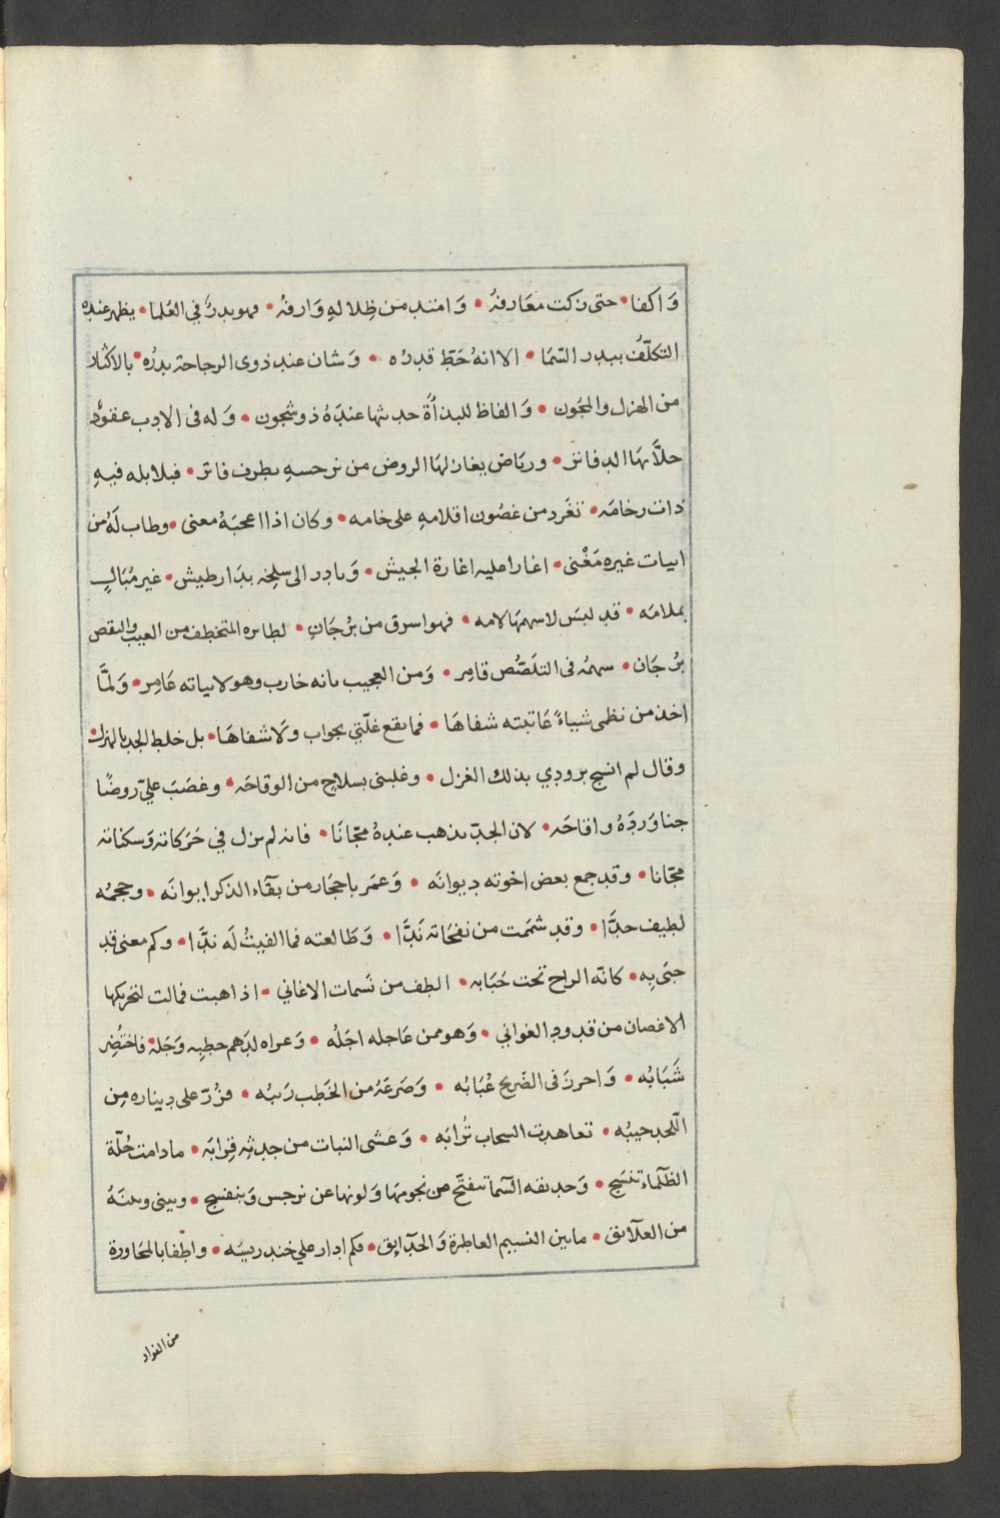 وَاكفا • حتى زكت معَارفهُ • وَامتد من ظِلالهِ وَارفهُ • فهو بدرٌ في العُلما • يظهر عنده
التكلّفُ ببدر السّمَا • الا انهُ حَطّ قدره • وَشان عند ذوى الرجاحة بدرُه • بالاكثار
من الهزل والمجُون • وَالفاظ للبذأَة حديثها عندَهُ ذو شجون • وَله فى الادب عقودٌ
حلاَّ بهَا الدفاتر • ورياض يغازلهَا الروض من نرجسهِ بطرف فاتر • فبلابله فيهِ
ذات رخامَه • تغرد من غصُون اقلامهِ على خامه • وكان اذا اعجبَهُ معنى • وطاب لَهُ من
ابيات غيره مَغْنى • اغار عليه اغارة الجيش • وَبادر الى سلخه بدَار طيش • غير مُبَالٍ
بملامَه • قد لبسَ لاسهمهَا لامه • فهو اسرق من بُرْجَانٍ • لطائره المتخطف من العيب والنقص
بُرْجَان • سهمُه فى التلَصّص قامِر • وَمن العجيب بانه خارب وهو لابياته عَامِر • وَلمَّا
اخذ من نظمى شياءً عَاتبته شفاهَا • فما نقع غلّتي بجواب وَلا شفاهَا • بل خلط الجد بالهزل
وقال لم انسج برودي بذلك الغزل • وغلبنى بسلاحٍ من الوقاحَه • وغصَبَ عليّ روضًا
جنا وَردَهُ واقاحَه • لان الجدّ يذهب عندهُ مجّانَا • فانه لم يزل في حَرَكاته وَسكناته
مجّانا • وقد جمع بعض اخوته ديوانَه • وَعمَر باحجَار من بقَاء الذكر ايوانَه • وحجمُه
لطيف جدَّا • وقد شممَت من نفحَاته نَدَّا • وَطَالعته فما الفيتُ لَه ندَّا • وكم معنى قد
جبَى بِه • كانّه الريح تحت حُبَابه • الطف من نَسمات الاغاني • اذا هبت فمالت لتحريكها
الاغصان من قدود الغواني • وَهو ممن عَاجله اجَلُه • وَعراه لدَهم خطبِه وَجَله • فاختُضِر
شَبَابُه • وَاحرزَ فى الضَريح عُبَابُه • وَصَرعَهُ من الخَطب رَيبُه • فزُرّ على ديناره مِن
اللّحد جيبُه • تعاهدت السحاب تُرابَه • وَغشى النبات من جدثِه قِرابَه • ما دامت حُلّة
الظَلماء تنسَج • وَحديقه السّما تتفتّح من نجومهَا وَلونها عن نرجس وَبنفسج • وبيني وبينَهُ
من العلَائق • ما بين النسيم العاطرة وَالحدَائِق • فكم ادار علي خندريسَه • واطفا بالمحَاورة
من الفواد